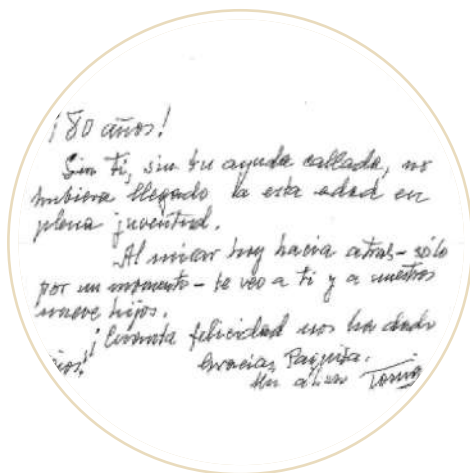 ¡80 años!
Sin ti, sin tu ayuda callada, no
hubiera llegado a esta edad en
plena juventud.
Al mirar hoy hacia atrás - sólo
por un momento - te veo a ti y a nuestros
nueve hijos.
¡Cuánta felicidad nos ha dado
Dios!
Gracias, Paquita.
Un abrazo Tomás